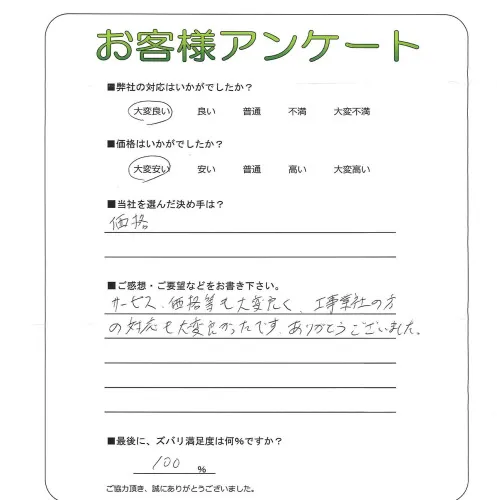 お客様アンケート
■弊社の対応はいかがでしたか？
大変良い 良い 普通 不満 大変不満
■価格はいかがでしたか？
大変安い 安い 普通 高い 大変高い
■当社を選んだ決め手は？
価格
■ご感想・ご要望などをお書き下さい。
サービス、価格等も大変良く、工事業社の方
の対応も大変良かったです、ありがとうございました。
■最後に、ズバリ満足度は何%ですか？
100 %
ご協力頂き、誠にありがとうございました。